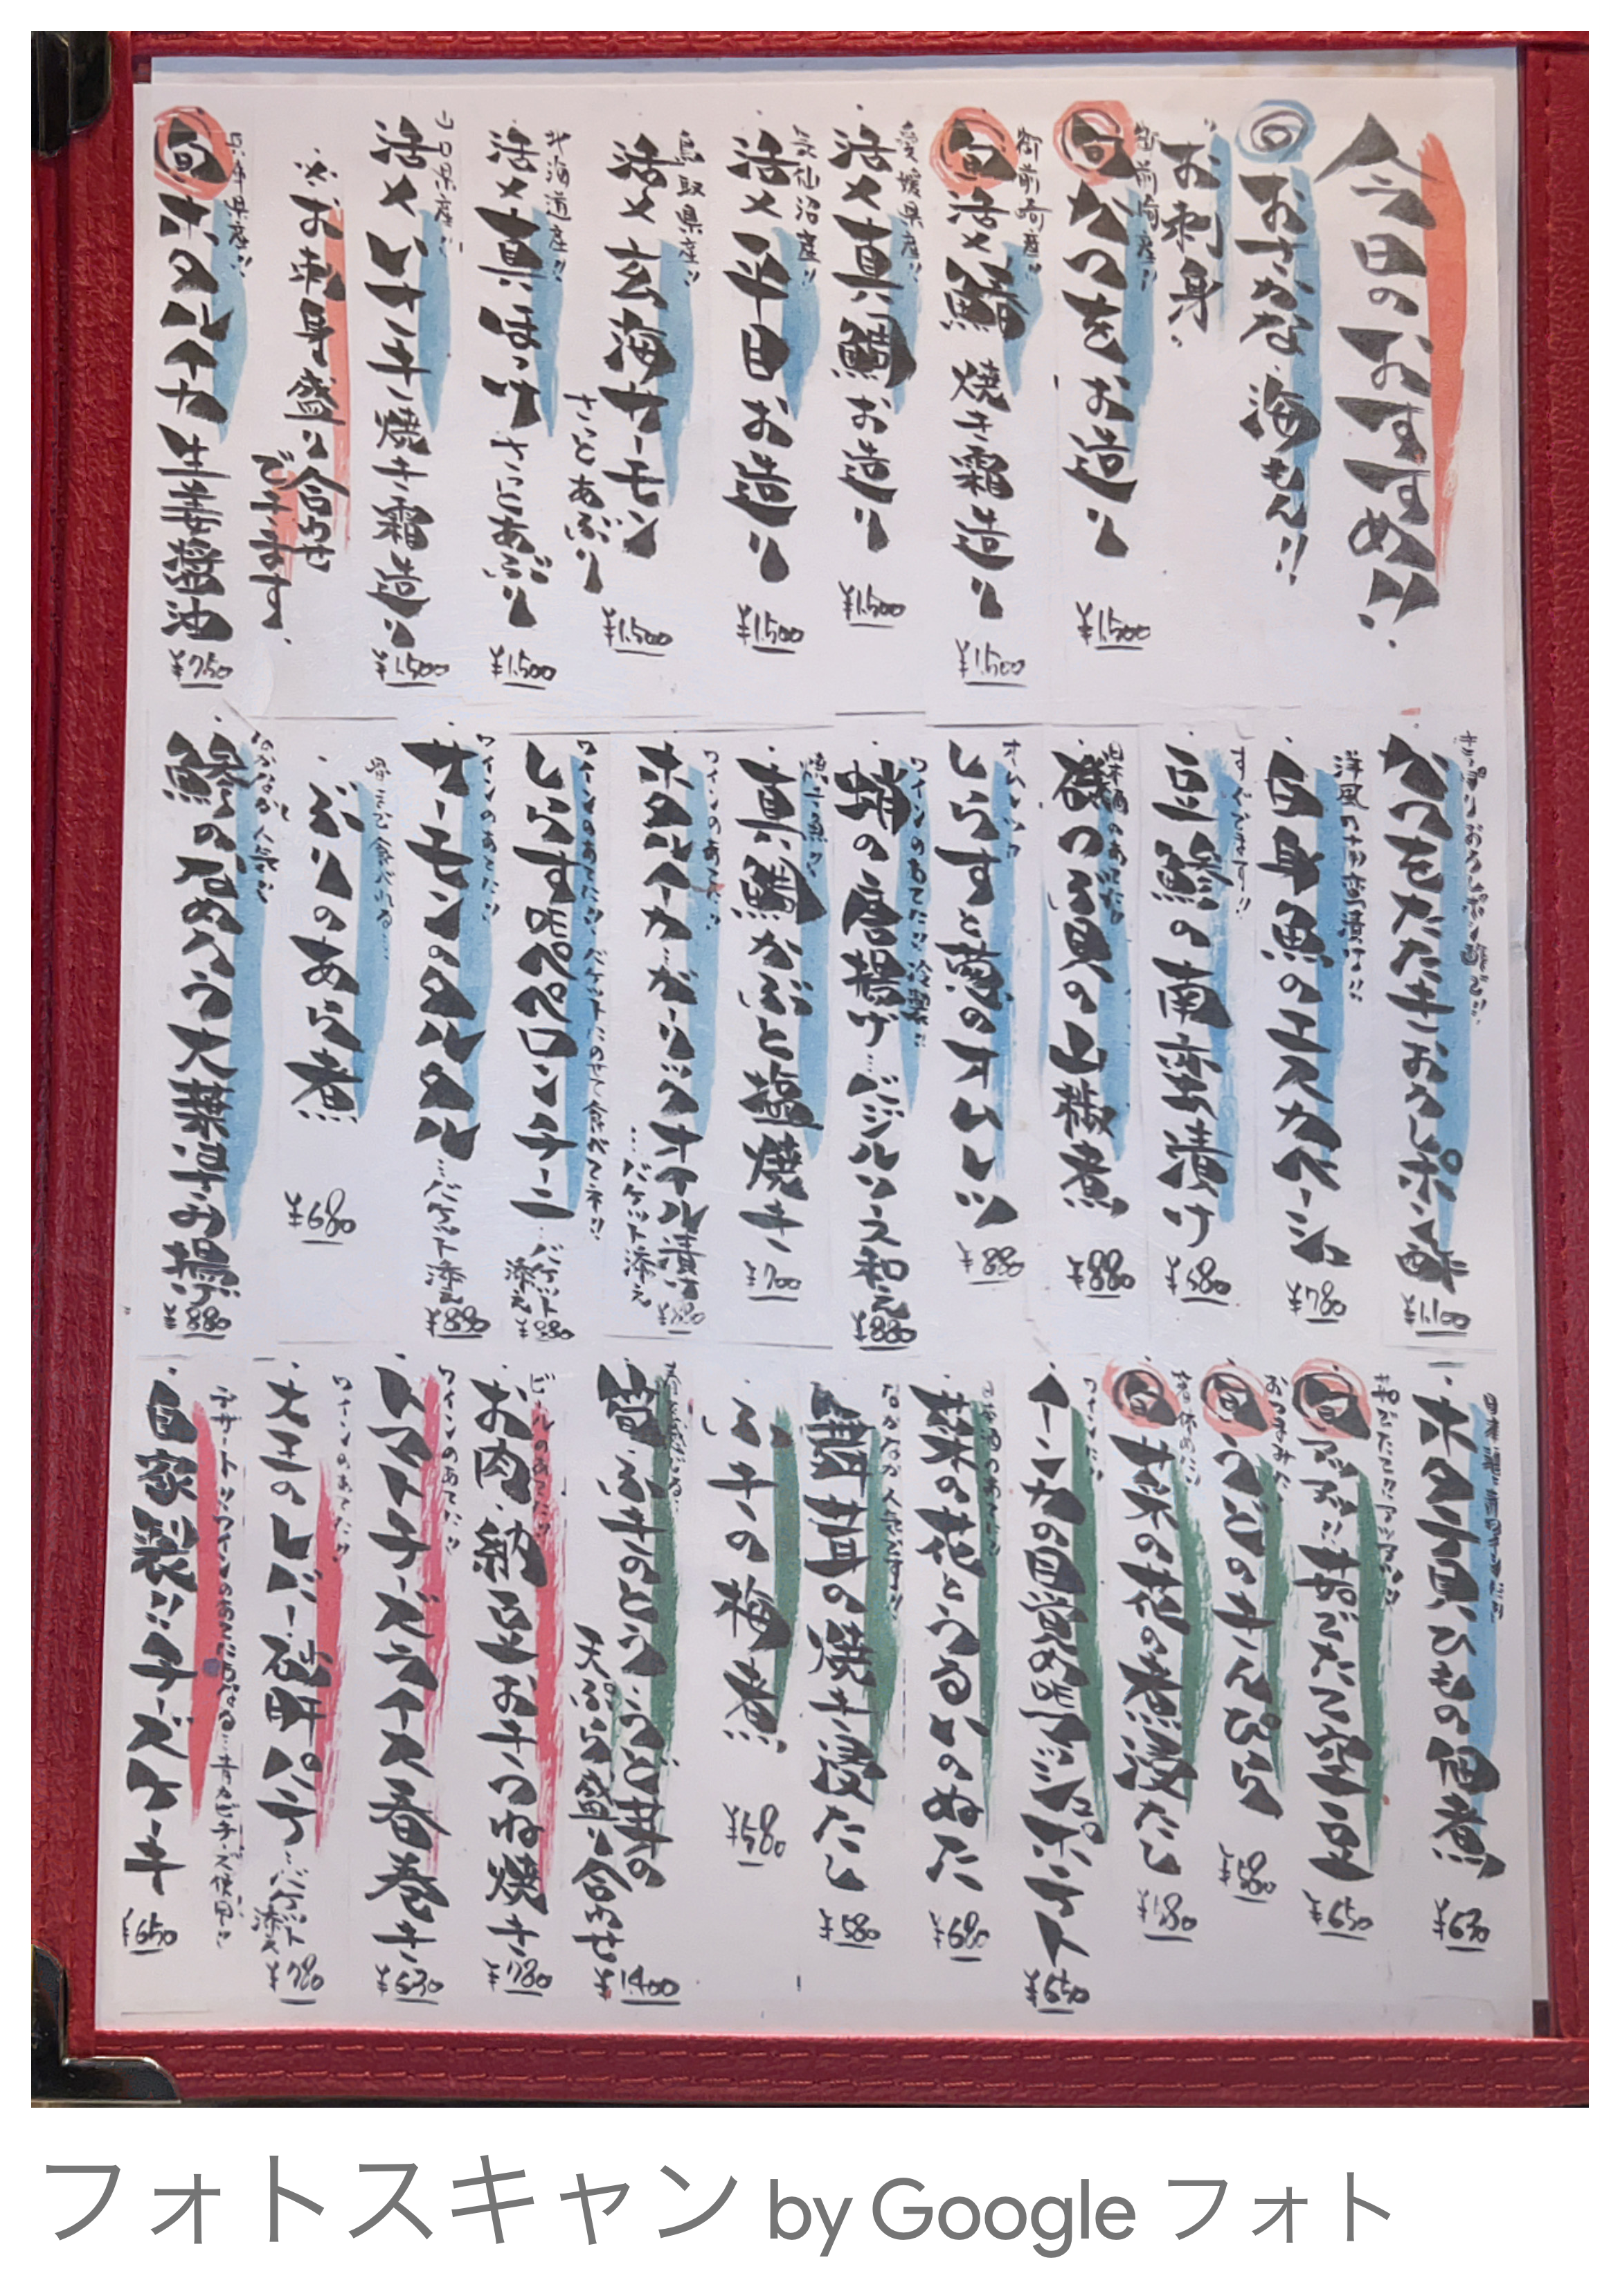 今日のおすすめ!!
◎おさかな・海もん!!
お刺身
御前崎産!!
旬 かつをお造り ¥1,500
御前崎産!!
旬 活〆鰆 焼き霜造り ¥1,500
愛媛県産!!
活〆真鯛お造り ¥1,500
気仙沼産!!
活〆平目お造り ¥1,500
鳥取県産!!
活〆玄海サーモン
さっとあぶり ¥1,500
北海道産!!
活〆真ほっけ さっとあぶり ¥1,500
活〆いサキ焼き霜造り ¥1,500
※お刺身盛り合わせ
できます。
旬 ホタルイカ 生姜醤油 ¥750
かつをたたきおろしポン酢 ¥1,100
白身魚のエスカベーシュ ¥780
すぐできます!!
豆鯵の南蛮漬け ¥580
日本酒のあてに!!
磯つぶ貝の山椒煮 ¥880
しらすと葱のオムレツ ¥880
蛸の唐揚げ…バジルソース和え ¥880
真鯛かぶと塩焼き ¥700
ワインのあてに!!
ホタルイカ…ガーリックオイル漬け
…バケット添え
ワインのあてに!!バケットにのせて食べてネ!!
しらすペペロンチーニ…バケット
添え ¥880
ワインのあてに!!
サーモンのタルタル…バケット添え ¥880
ぶりのあら煮 ¥680
なかなか人気!!
鯵のねぎみそ大葉早お揚げ ¥880
ホタテ貝ひもの旨煮 ¥630
旬 アツアツ!!お焼きたて空豆 ¥650
おつまみに
旬 うどのきんぴら ¥580
旬 菜の花の煮浸たし
ワインに!!
インカの目覚めアンチョビポテト ¥650
日本酒のあてに!!
菜の花とうるいのぬた ¥680
なかなか人気です!!
舞茸の焼き浸たし ¥580
ふきの梅煮 ¥580
筍・ふきのとう・こごみの
天ぷら盛り合わせ ¥1,400
ビールのあてに!!
お肉・納豆お きつね焼き ¥780
ワインのあてに!!
トマトチーズライス春巻き ¥630
ワインのあてに!!
大王のレバー砂肝パテ…バケット
添え ¥780
デザート!!ワインのあてにもなる…キリチーズ使用!!
自家製!!チーズケーキ ¥650
フォトスキャン by Google フォト